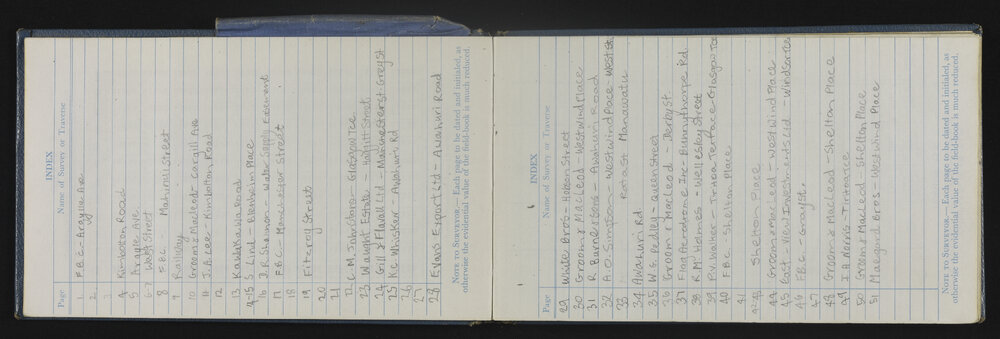 INDEX
Page Name of Survey or Traverse
1. F.B.C - Argylle Ave
2.
3.
4 Kimbolton Road
5 Argyle Ave
6-7 West Street
8 F.B.C. Mahinui Street
9 Railway
10 Groom & McLeod - Cargill Ave
11 J.B. Lee - Kimbolton Road
12
13 Kawakawa Road
14-15 S. Lind - Blenheim Place
16 J.R. Shannon - Water Supply Easement
17 F.B.C - Manchester Street
18
19 Fitzroy Street
20
21
22 C.M. Johnstone - Glasgow Tce
23 Waught Estate - Street
24 Gill & Flavall Ltd - Manchester St Grey St
25 K.C Whisker - Awahuri Rd
26
27
28 Evans Export Ltd - Awahuri Road
NOTE TO SURVEYOR.— Each page to be dated and initialed, as
otherwise the evidential value of the field-book is much reduced.
INDEX
Page Name of Survey or Traverse
29 White Bros - Hobson Street
30 Groom & MacLeod - Westwind Place
31 R Burne & Sons - Awahuri Road
32 A.O. Simpson - Westwind Place West St
33 Rona St Manawatu
34 Awahuri Rd
35 W.S. Fredley - Queen Street
36 Groom & MacLeod - Derby St.
37 Flag Aerodrome Inc - Bunnythorpe Rd
38 R. McHolmes - Wellesley Street
39 F.V. Walker - Terrace - Glasgow Tce
40 F.B.C Shelton Place
41
42-43 Shelton Place
44 Groom & MacLeod - Westwind Place
45 East View Investments Ltd - Windsor Tce
46 F.B.C - Grey St.
47
48 Groom & MacLeod - Shelton Place
49 J.A Norris - Tiritoa Tce
50 Groom & MacLeod - Shelton Place
51 Bros - Westwind Place
NOTE TO SURVEYOR.— Each page to be dated and initialed, as
otherwise the evidential value of the field-book is much reduced.